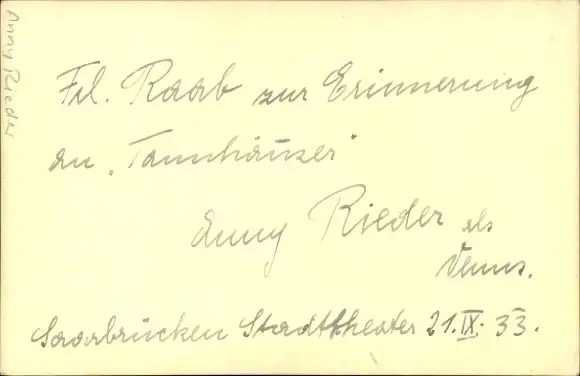 Anny Rieder
Frl. Raab zur Erinnerung
an „Tannhäuser"
Anny Rieder als
Venus.
Saarbrücken Stadttheater 21.IX.33.